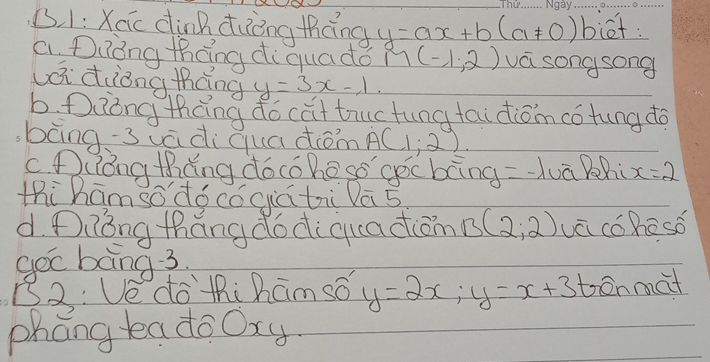 Thứ......... Ngày.........
B.1: Xác định đường thẳng y=ax+b (a≠0) biết:
a. Đường thẳng đi qua đó M(-1;2) và song song
với đường thẳng y=3x-1.
b. Đường thẳng đó cắt trục tung tại điểm có tung độ
bằng -3 và đi qua điểm A(1;2).
c. Đường thẳng đó có hệ số góc bằng = -1 và khi x=2
thì hàm số đó có giá trị là 5.
d. Đường thẳng đó đi qua điểm B(2;2) và có hệ số
góc bằng -3.
B2: Vẽ đồ thị hàm số y=2x; y=x+3 trên mặt
phẳng tọa độ Oxy.